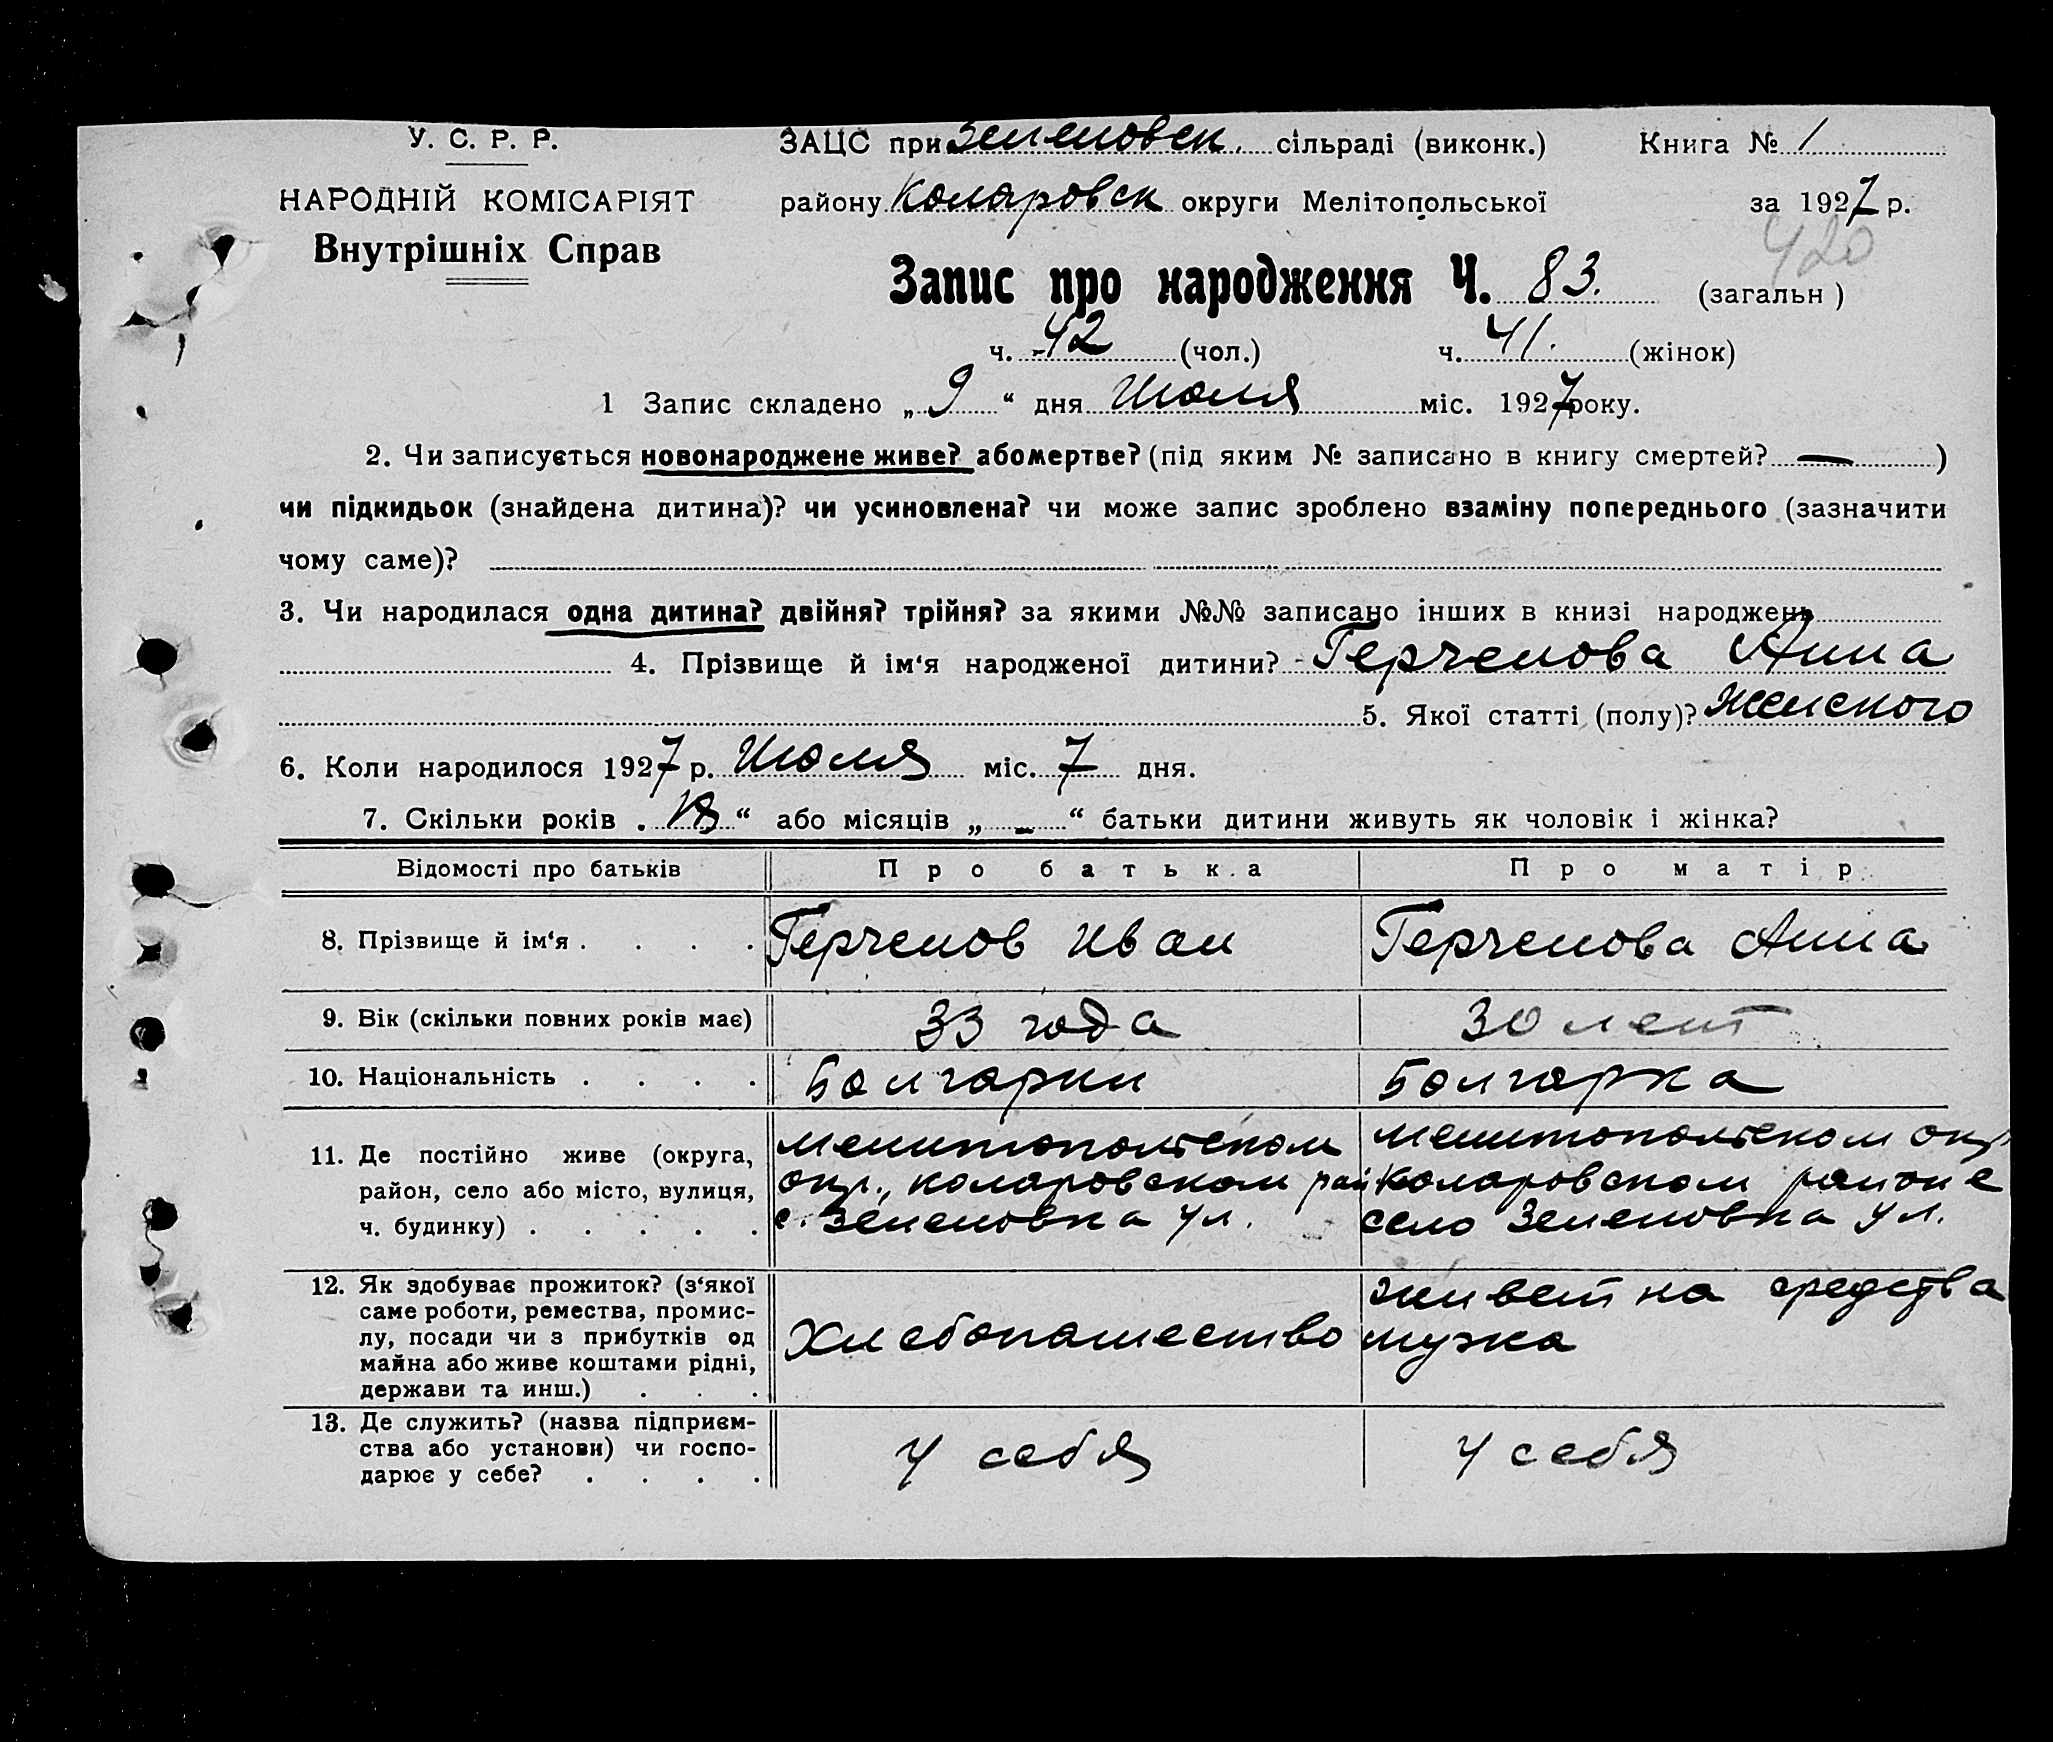 У. С. Р. Р.
НАРОДНІЙ КОМІСАРІЯТ
Внутрішніх Справ
ЗАЦС при Зеленовск. сільраді (виконк.) Книга № 1
району Коларовск округи Мелітопольської за 1927 р.
420
Запис про народження Ч. 83. (загальн)
ч. 42 (чол.) ч. 41. (жінок)
1 Запис складено „ 9 “ дня Июля міс. 1927 року.
2. Чи записується новонароджене живе? або мертве? (під яким № записано в книгу смертей? — )
чи підкидьок (знайдена дитина)? чи усиновлена? чи може запис зроблено взаміну попереднього (зазначити
чому саме)?
3. Чи народилася одна дитина? двійня? трійня? за якими №№ записано інших в книзі народжень
4. Прізвище й ім‘я народженої дитини? Герченова Анна
5. Якої статті (полу)? Женского
6. Коли народилося 1927 р. Июля міс. 7 дня.
7. Скільки років „ “ або місяців „ – “ батьки дитини живуть як чоловік і жінка?
Відомості про батьків Про батька Про матір
8. Прізвище й ім‘я . . . . Герченов Иван Герченова Анна
9. Вік (скільки повних років має) 33 года 30 лет
10. Національність . . . . Болгарин Болгарка
11. Де постійно живе (округа, Мелитопольском Мелитопольском окр
район, село або місто, вулиця, окр., Коларовском рай Коларовском районе
ч. будинку) . . . . . с. Зеленовка ул. село Зеленовка ул.
12. Як здобуває прожиток? (з‘якої живет на средства
саме роботи, ремества, промис-
лу, посади чи з прибутків од Хлебопашество мужа
майна або живе коштами рідні,
держави та инш.) . . .
13. Де служить? (назва підприєм-
ства або установи) чи госпо- У себя У себя
дарює у себе? . . . .